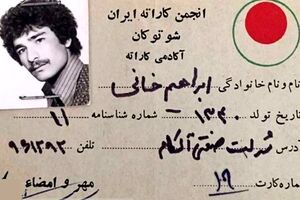 انجمن کاراته ایران
شوتوکان
آکادمی کاراته
نام و نام خانوادگی ابراهیم خانی
تاریخ تولد ۱۳۴۰ شماره شناسنامه ۱۱
آدرس صنعتی تلفن ۹۶۱۳۹۳
شماره کارت ۱۹
مهر و امضاء